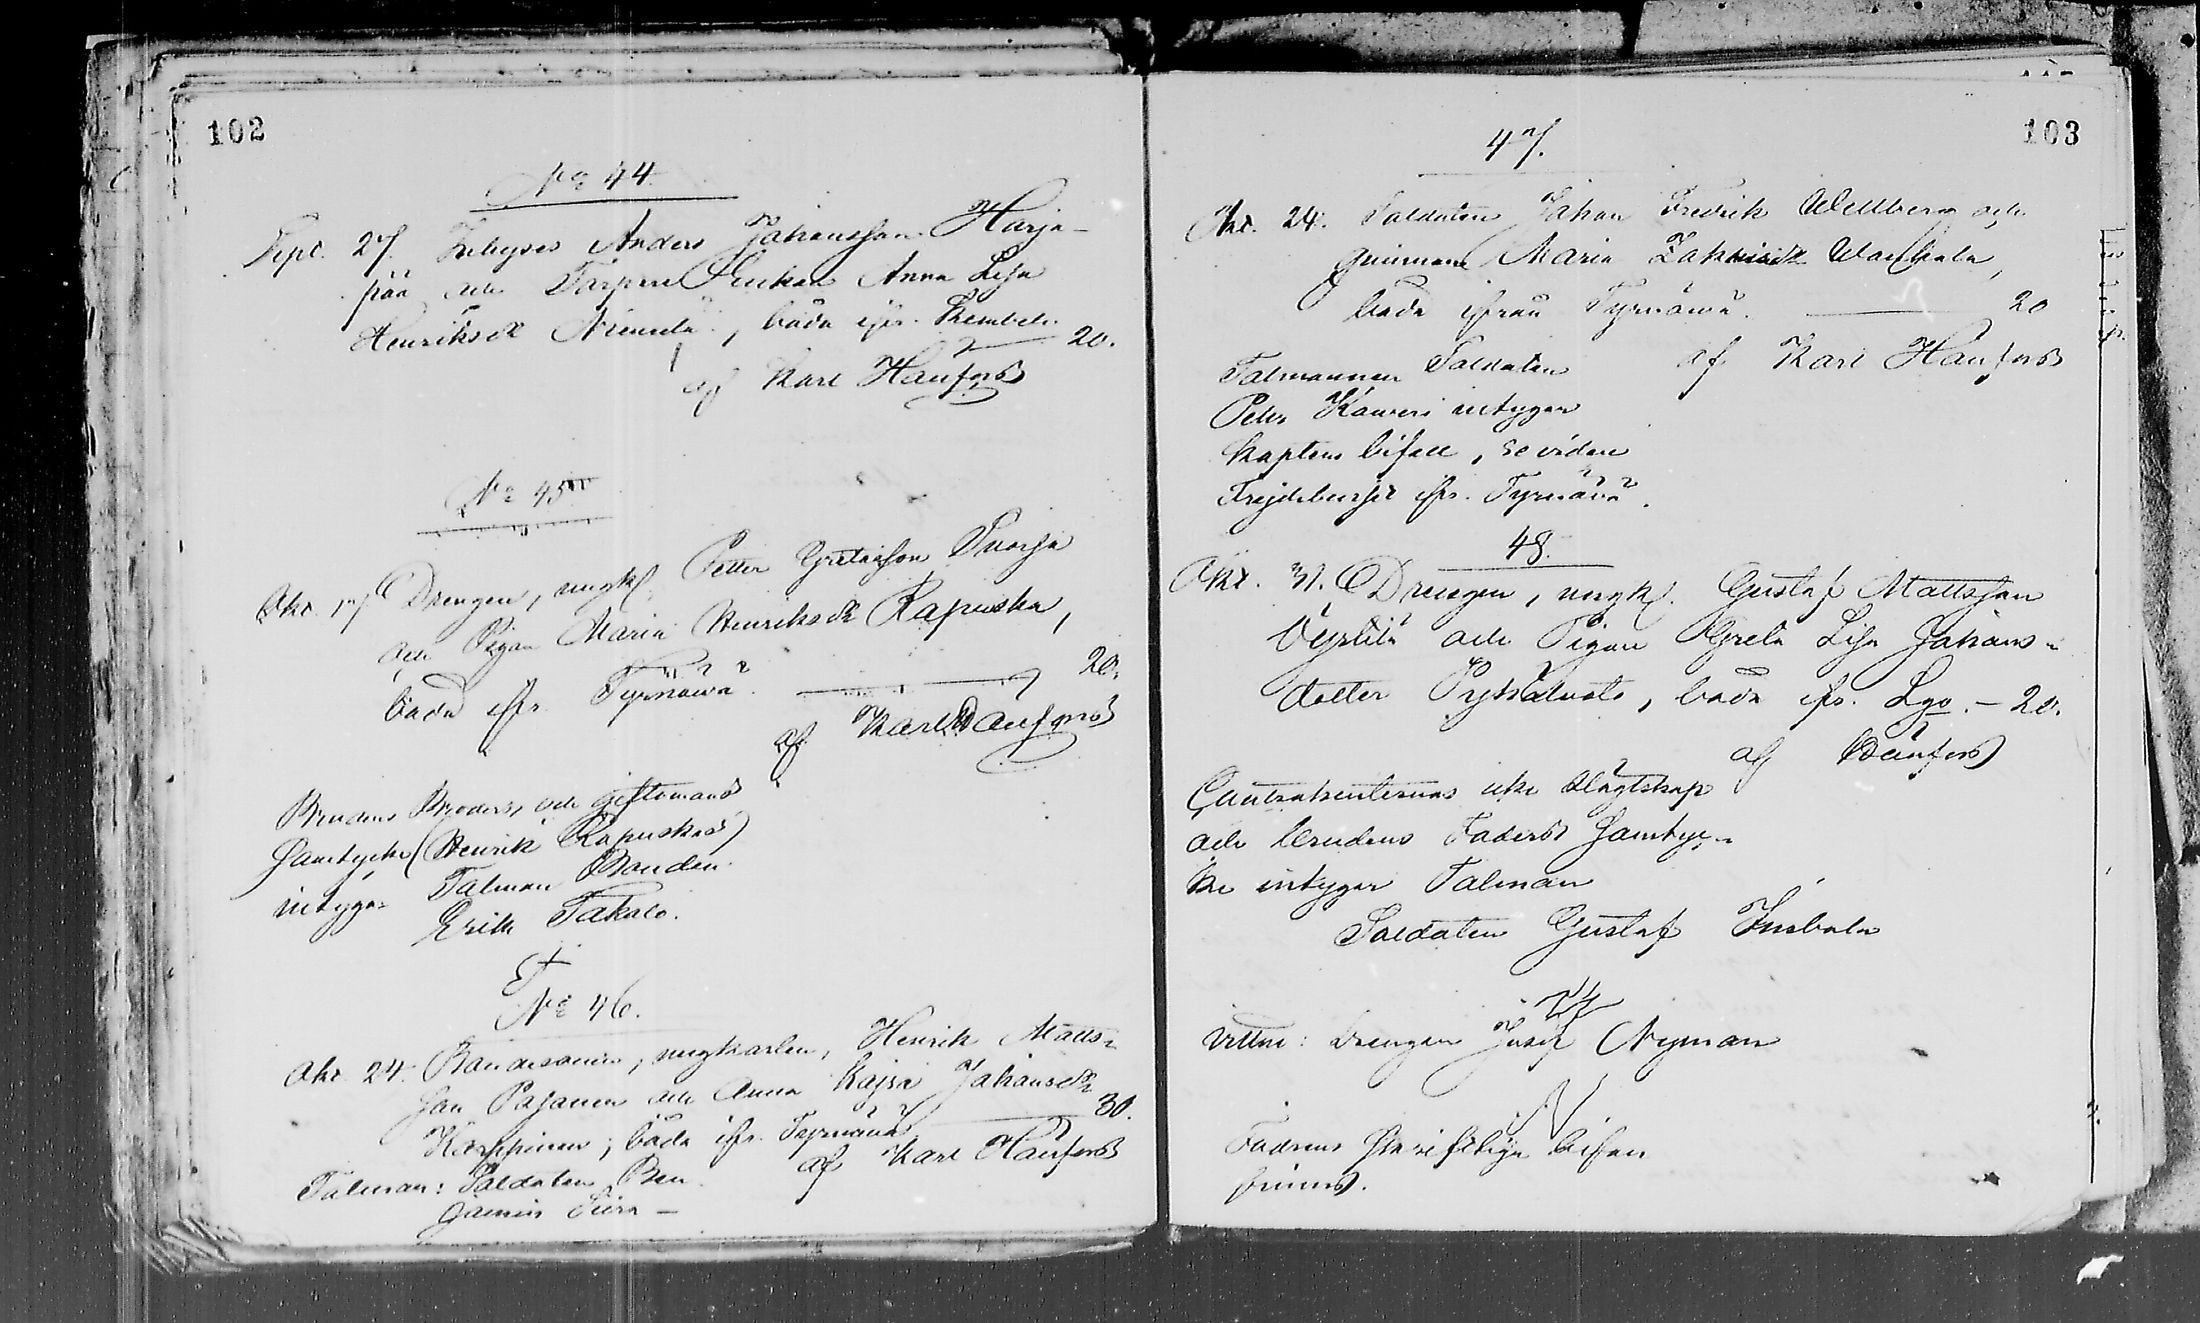 102
No 44.
Sept. 27. Inhyses Anders Johansson Harju-
pää och Torparenkan Anna Lisa
Henriksdr Niemelä, båda ifr. Kembele 20.
af Karl Hanfors
No 45
Okt. 17 Drengen, ungk. Petter Gustafson Suorsa
och Pigan Maria Henriksdr Rapuska,
båda ifr. Tyrnäwä. 20.
af Karl Hanfors
Brudens Broders och giftomans
samtycke (Henrik Rapuskas)
intygar Talman Bonden
Erik Takalo.
No 46.
Okt. 24. Bondesonen, ungkarlen, Henrik Matts-
son Pajanen och Anna Kajsa Johansdr
Karppinen; båda ifr. Tyrnäwä 30.
Talman: Soldaten Ben af Karl Hanfors
jamin
103
47.
Okt. 24. Soldaten Johan Fredrik Wellberg och
qvinnan Maria Zakrisdr
båda ifrån Tyrnäwä. 20
Talmannen Soldaten af Karl Hanfors
Peter Kaweri intygar
Kaptens bifall, se vidare
Frejdebeviset ifr. Tyrnäwä.
48.
Okt. 31. Drengen, ungk. Gustaf Mattsson
och Pigan Greta Lisa Johans-
dotter , båda ifr. Lgo. - 20.
af Hanfors
Contrahenternas icke slägtskap
och brudens Faders samtyc-
ke intygar Talman
Soldaten Gustaf
Vittne: Drengen Josef Nyman
Fadrens skriftliga bifall
finnes.